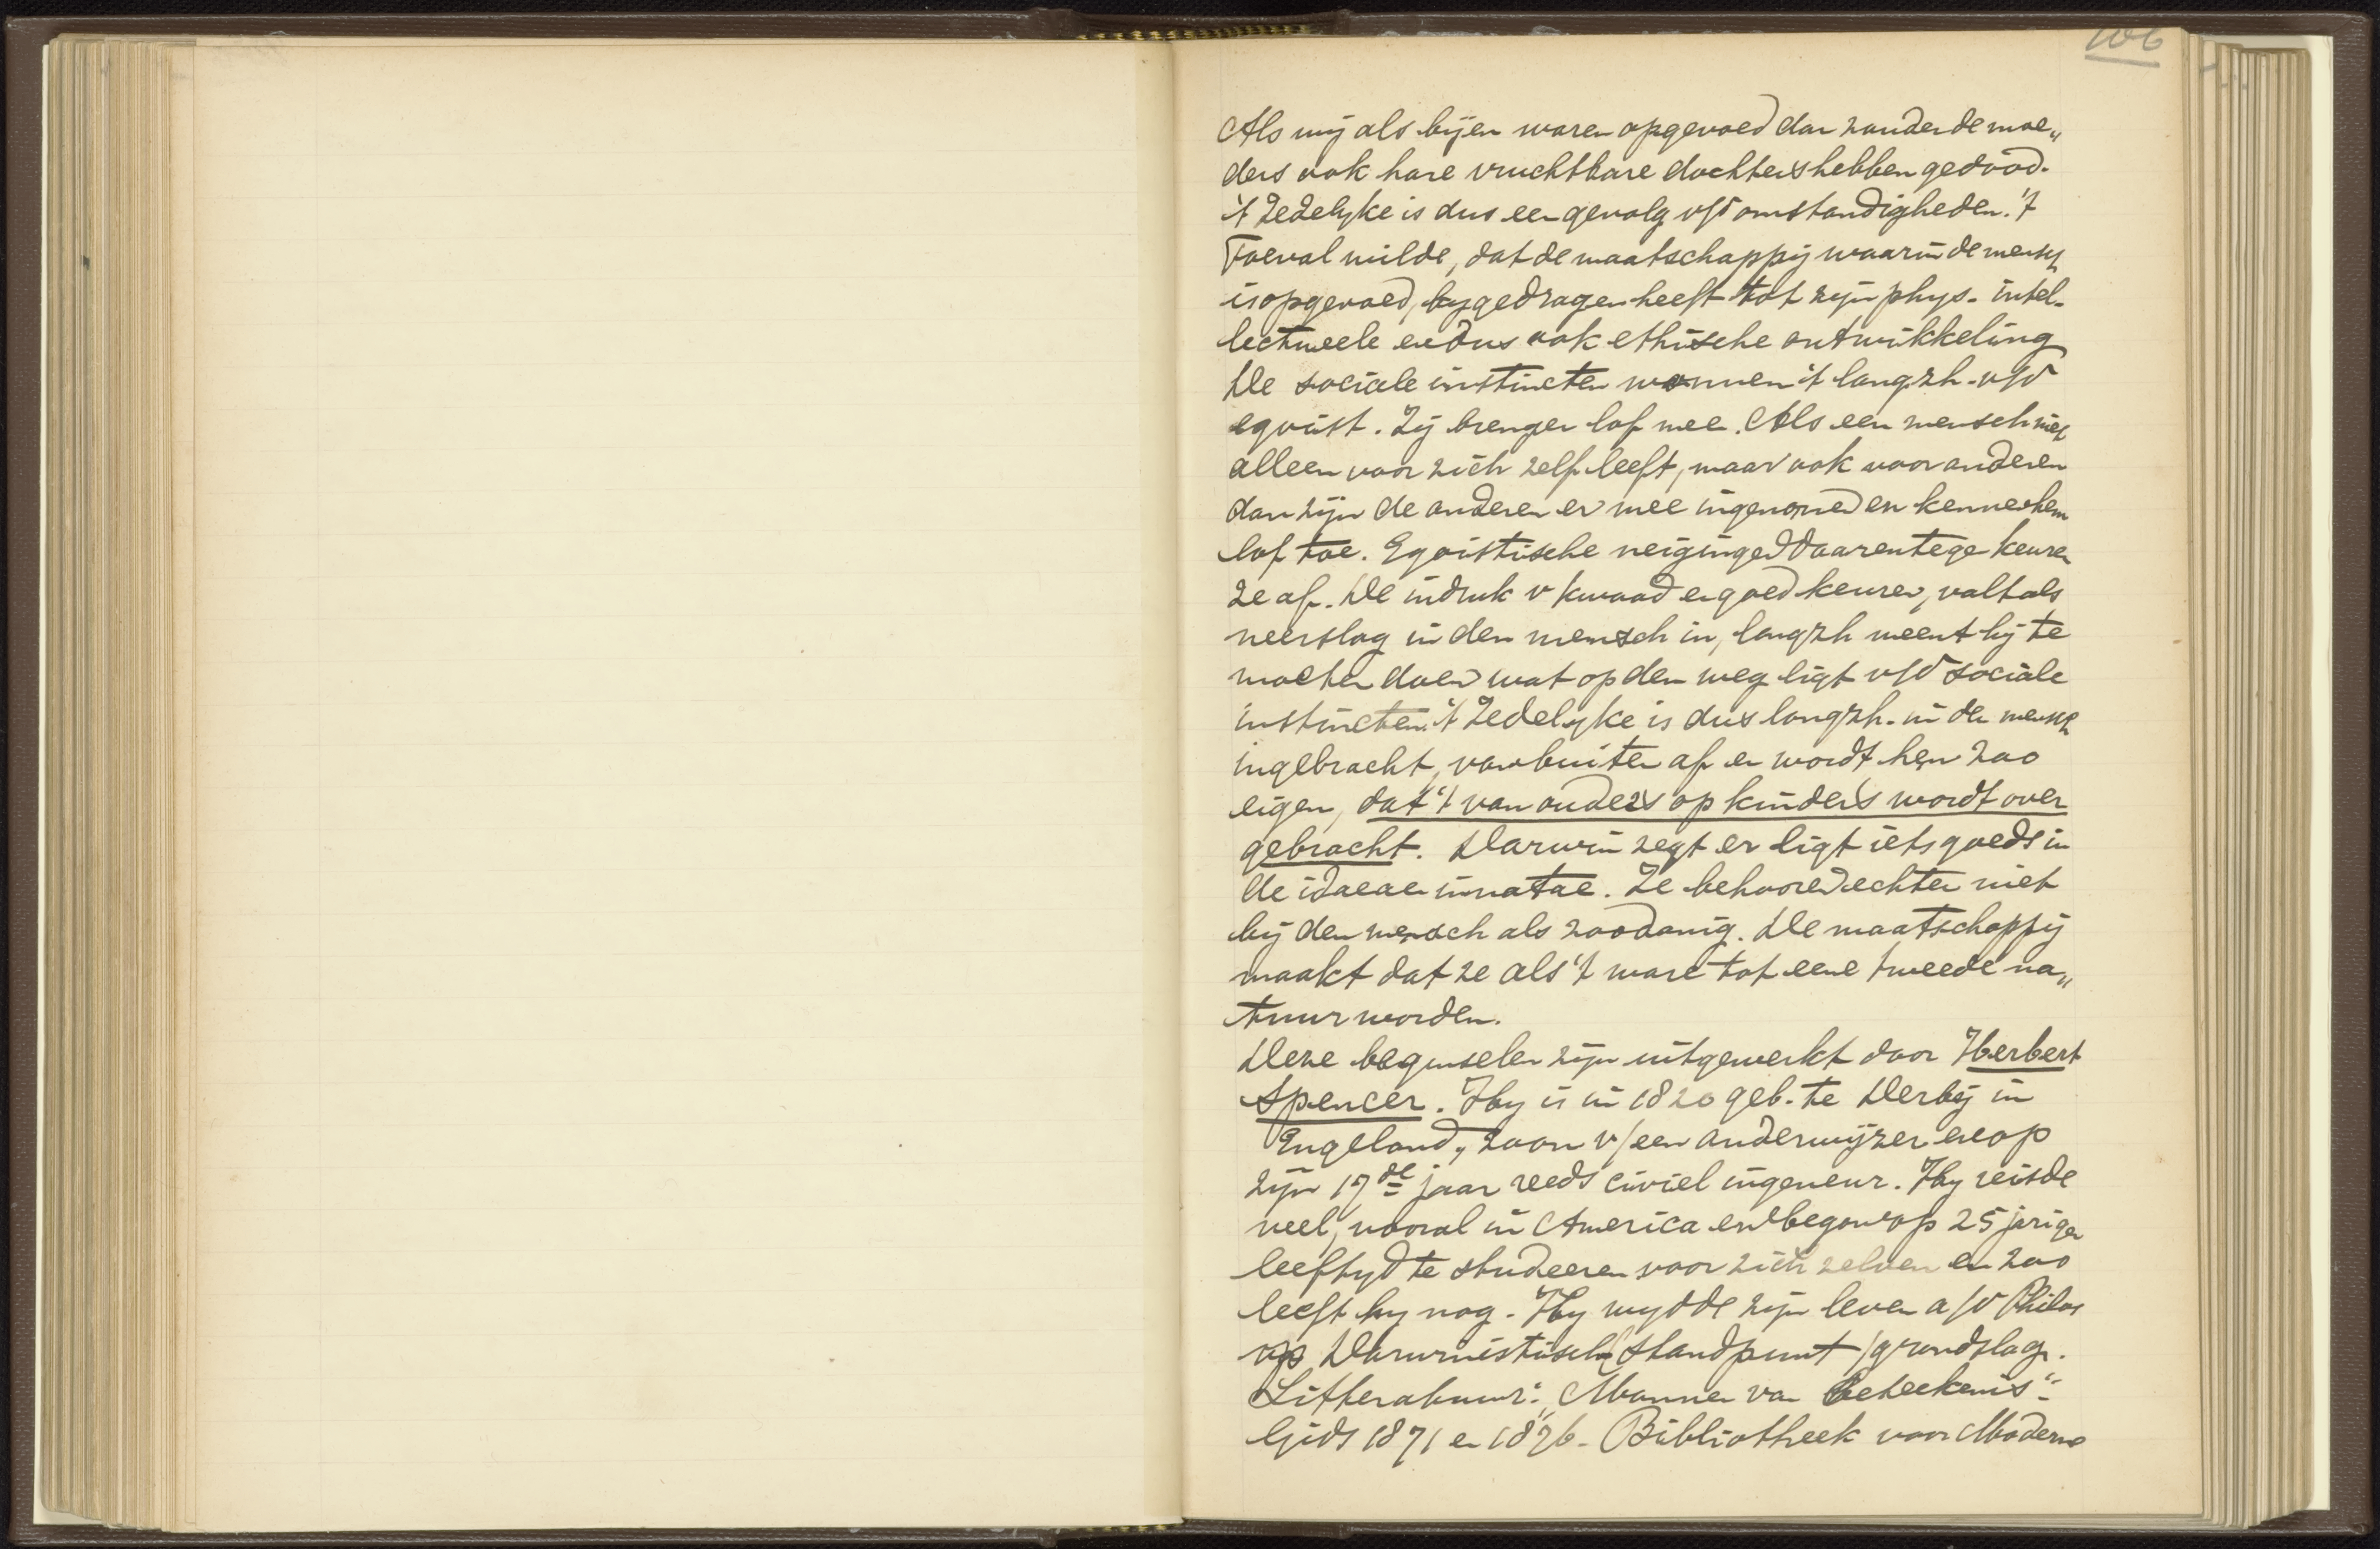 106
Als wij als bijen waren opgevoed dan zouden de moe„
ders ook hare vruchtbare dochters hebben gedood.
't Zedelyke is dus een gevolg v/d omstandigheden. 't
Toeval wilde, dat de maatschappij waarin de mensch
is opgevoed, bygedragen heeft tot zijn phys. intel-
lectueele en dus ook ethische ontwikkeling
De sociale instincten wonnen 't langzh. v/d
egoist. Zij brengen lof mee. Als een mensch niet
alleen voor zich zelf leeft, maar ook voor anderen
dan zijn de anderen er mee ingenomen en kennen hem
lof toe. Egoistische neigingen daarentegen keuren
ze af. De indruk v kwaad en goed keuren, valt als
neerslag in den mensch in, langzh meent hij te
moeten doen wat op den weg ligt v/d sociale
instincten. 't Zedelyke is dus langzh. in den mensch
ingebracht, van buiten af en wordt hem zoo
eigen, dat 't van ouders op kinders wordt over
gebracht. Darwin zegt er ligt iets goeds in
de idaeae innatae. Ze behooren echter niet
bij den mensch als zoodanig. De maatschappij
maakt dat ze als 't ware tot eene tweede na„
tuur worden.
Deze beginselen zijn uitgewerkt door Herbert
Spencer. Hy is in 1820 geb. te Derbij in
Engeland, zoon v/een onderwijzer en op
zijn 17de jaar reeds civiel ingeneur. Hy reisde
veel, vooral in America en begon op 25 jarigen
leeftyd te studeeren voor zich zelven en zoo
leeft hy nog. Hy wydde zijn leven a/d Philos
op Darwinistisch standpunt / grondslag.
Litteratuur: „Mannen van Beteekenis"
Gids 1871 en 1876. Bibliotheek voor Moderne